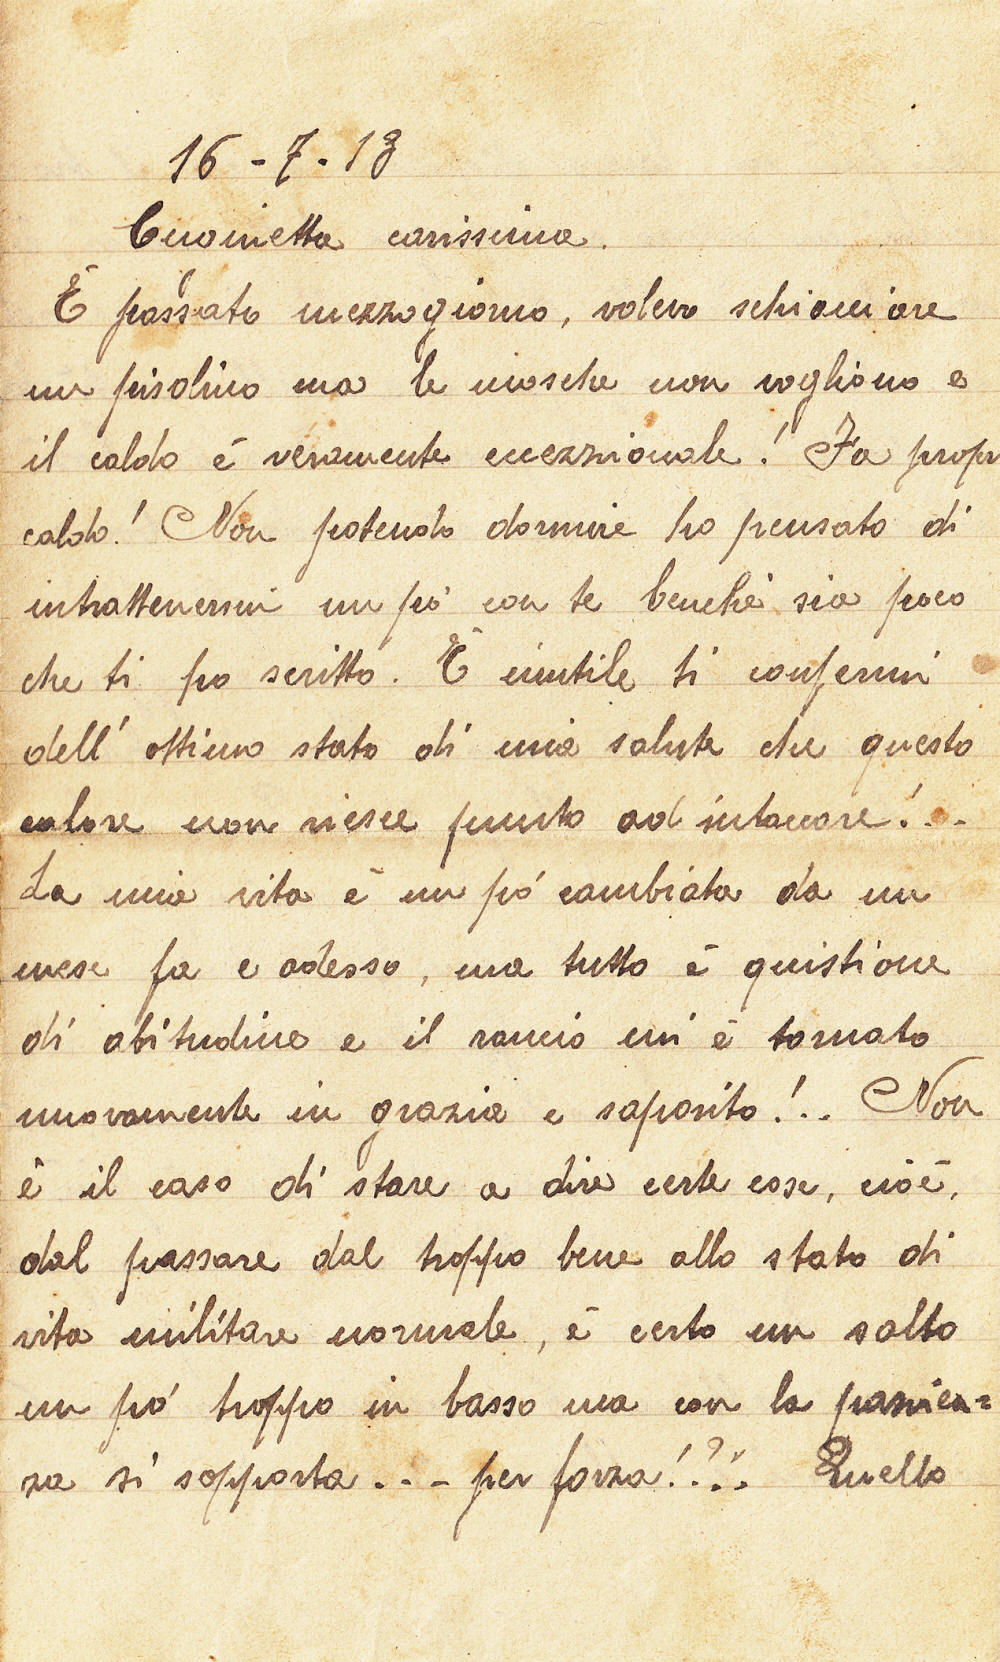 16 - 7 - 13
Cuginetta carissima.
È passato mezzogiorno, volevo schiacciare
un pisolino ma le mosche non vogliono e
il caldo è veramente eccezzionale! Fa propr
caldo! Non potendo dormire ho pensato di
intrattenermi un pó con te benchè sia poco
che ti ho scritto. È inutile ti confermi
dell' ottimo stato di mia salute che questo
calore non riesce punto ad intaccare!...
La mia vita è un pó cambiata da un
mese fa e adesso, ma tutto è quistione
di abitudine e il rancio mi è tornato
nuovamente in grazia e saporito!.. Non
è il caso di stare a dire certe cose, cioè,
dal passare dal troppo bene allo stato di
vita militare normale, è certo un salto
un pó troppo in basso ma con la pazien=
za si sopporta... per forza!.?!. Quello